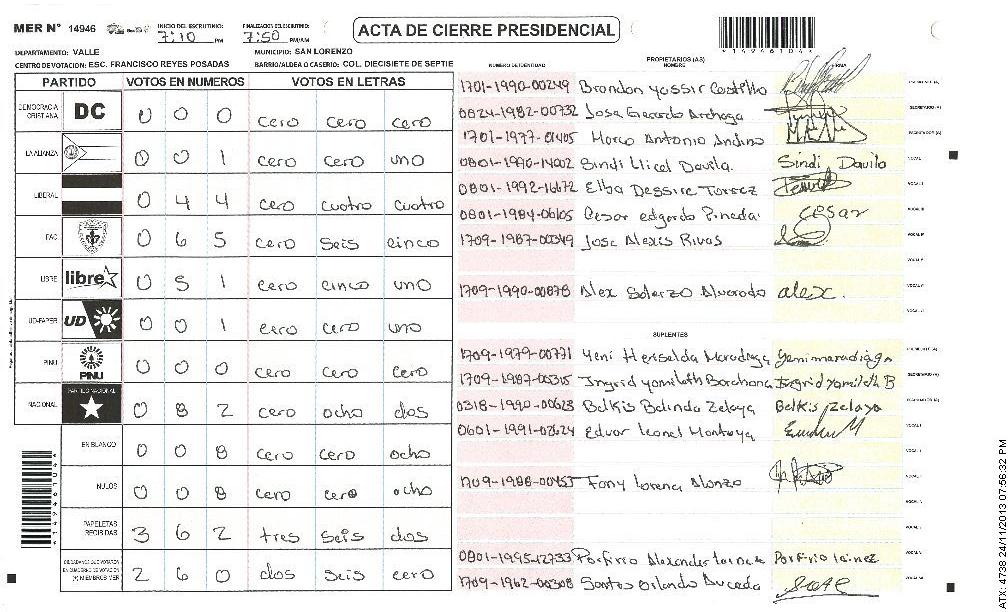 MER Nº 14946 INICIO DEL ESCRUTINIO: 7:10 PM FINALIZACION ESCRUTINIO: 7:50 PM/AM ACTA DE CIERRE PRESIDENCIAL
DEPARTAMENTO: VALLE MUNICIPIO: SAN LORENZO
CENTRO DE VOTACION: ESC. FRANCISCO REYES POSADAS BARRIO/ALDEA O CASERÍO: COL. DIECISIETE DE SEPTIE
PARTIDO VOTOS EN NUMEROS VOTOS EN LETRAS
DEMOCRACIA CRISTIANA DC 0 0 0 cero cero cero
LA ALIANZA 0 0 1 cero cero uno
LIBERAL 0 4 4 cero cuatro cuatro
PAC 0 6 5 cero seis cinco
LIBRE libre 0 5 1 cero cinco uno
UD-FAPER UD 0 0 1 cero cero uno
PINU PINU 0 0 0 cero cero cero
NACIONAL PARTIDO NACIONAL 0 8 2 cero ocho dos
EN BLANCO 0 0 8 cero cero ocho
NULOS 0 0 8 cero cero ocho
PAPELETAS RECIBIDAS 3 6 2 tres seis dos
CIUDADANOS QUE VOTARON EN CUADERNO DE VOTACION (+) MIEMBROS MER 2 6 0 dos seis cero
NUMERO DE IDENTIDAD PROPIETARIOS (AS) NOMBRE FIRMA
1701-1990-00249 Brandon yossir Castillo
0824-1982-00732 Jose Gerardo
1701-1977-01405 Marco Antonio Andino
0801-1990-14002 Sindi Davila. Sindi Davila
0801-1992-16672 Elba Dessire Torrez
0801-1984-06105 Cesar edgardo Pineda Cesar
1709-1987-00349 Jose Alexis Rivas
1709-1990-00878 Alex Alvarado alex.
SUPLENTES
1709-1979-00771 Yeni
1709-1987-00315 Ingrid yamileth Ingrid Yamileth B
0318-1990-00623 Belkis Belinda Zelaya Belkis Zelaya
0601-1991-02624 Edvar leonel Montoya
1709-1988-00453 Fany lorena Alonzo
0801-1995-12733 Porfirio Alexander Porfirio lainez
1709-1962-00308 Santos Orlando
14946104
ATX: 4738 24/11/2013 07:56:32 PM